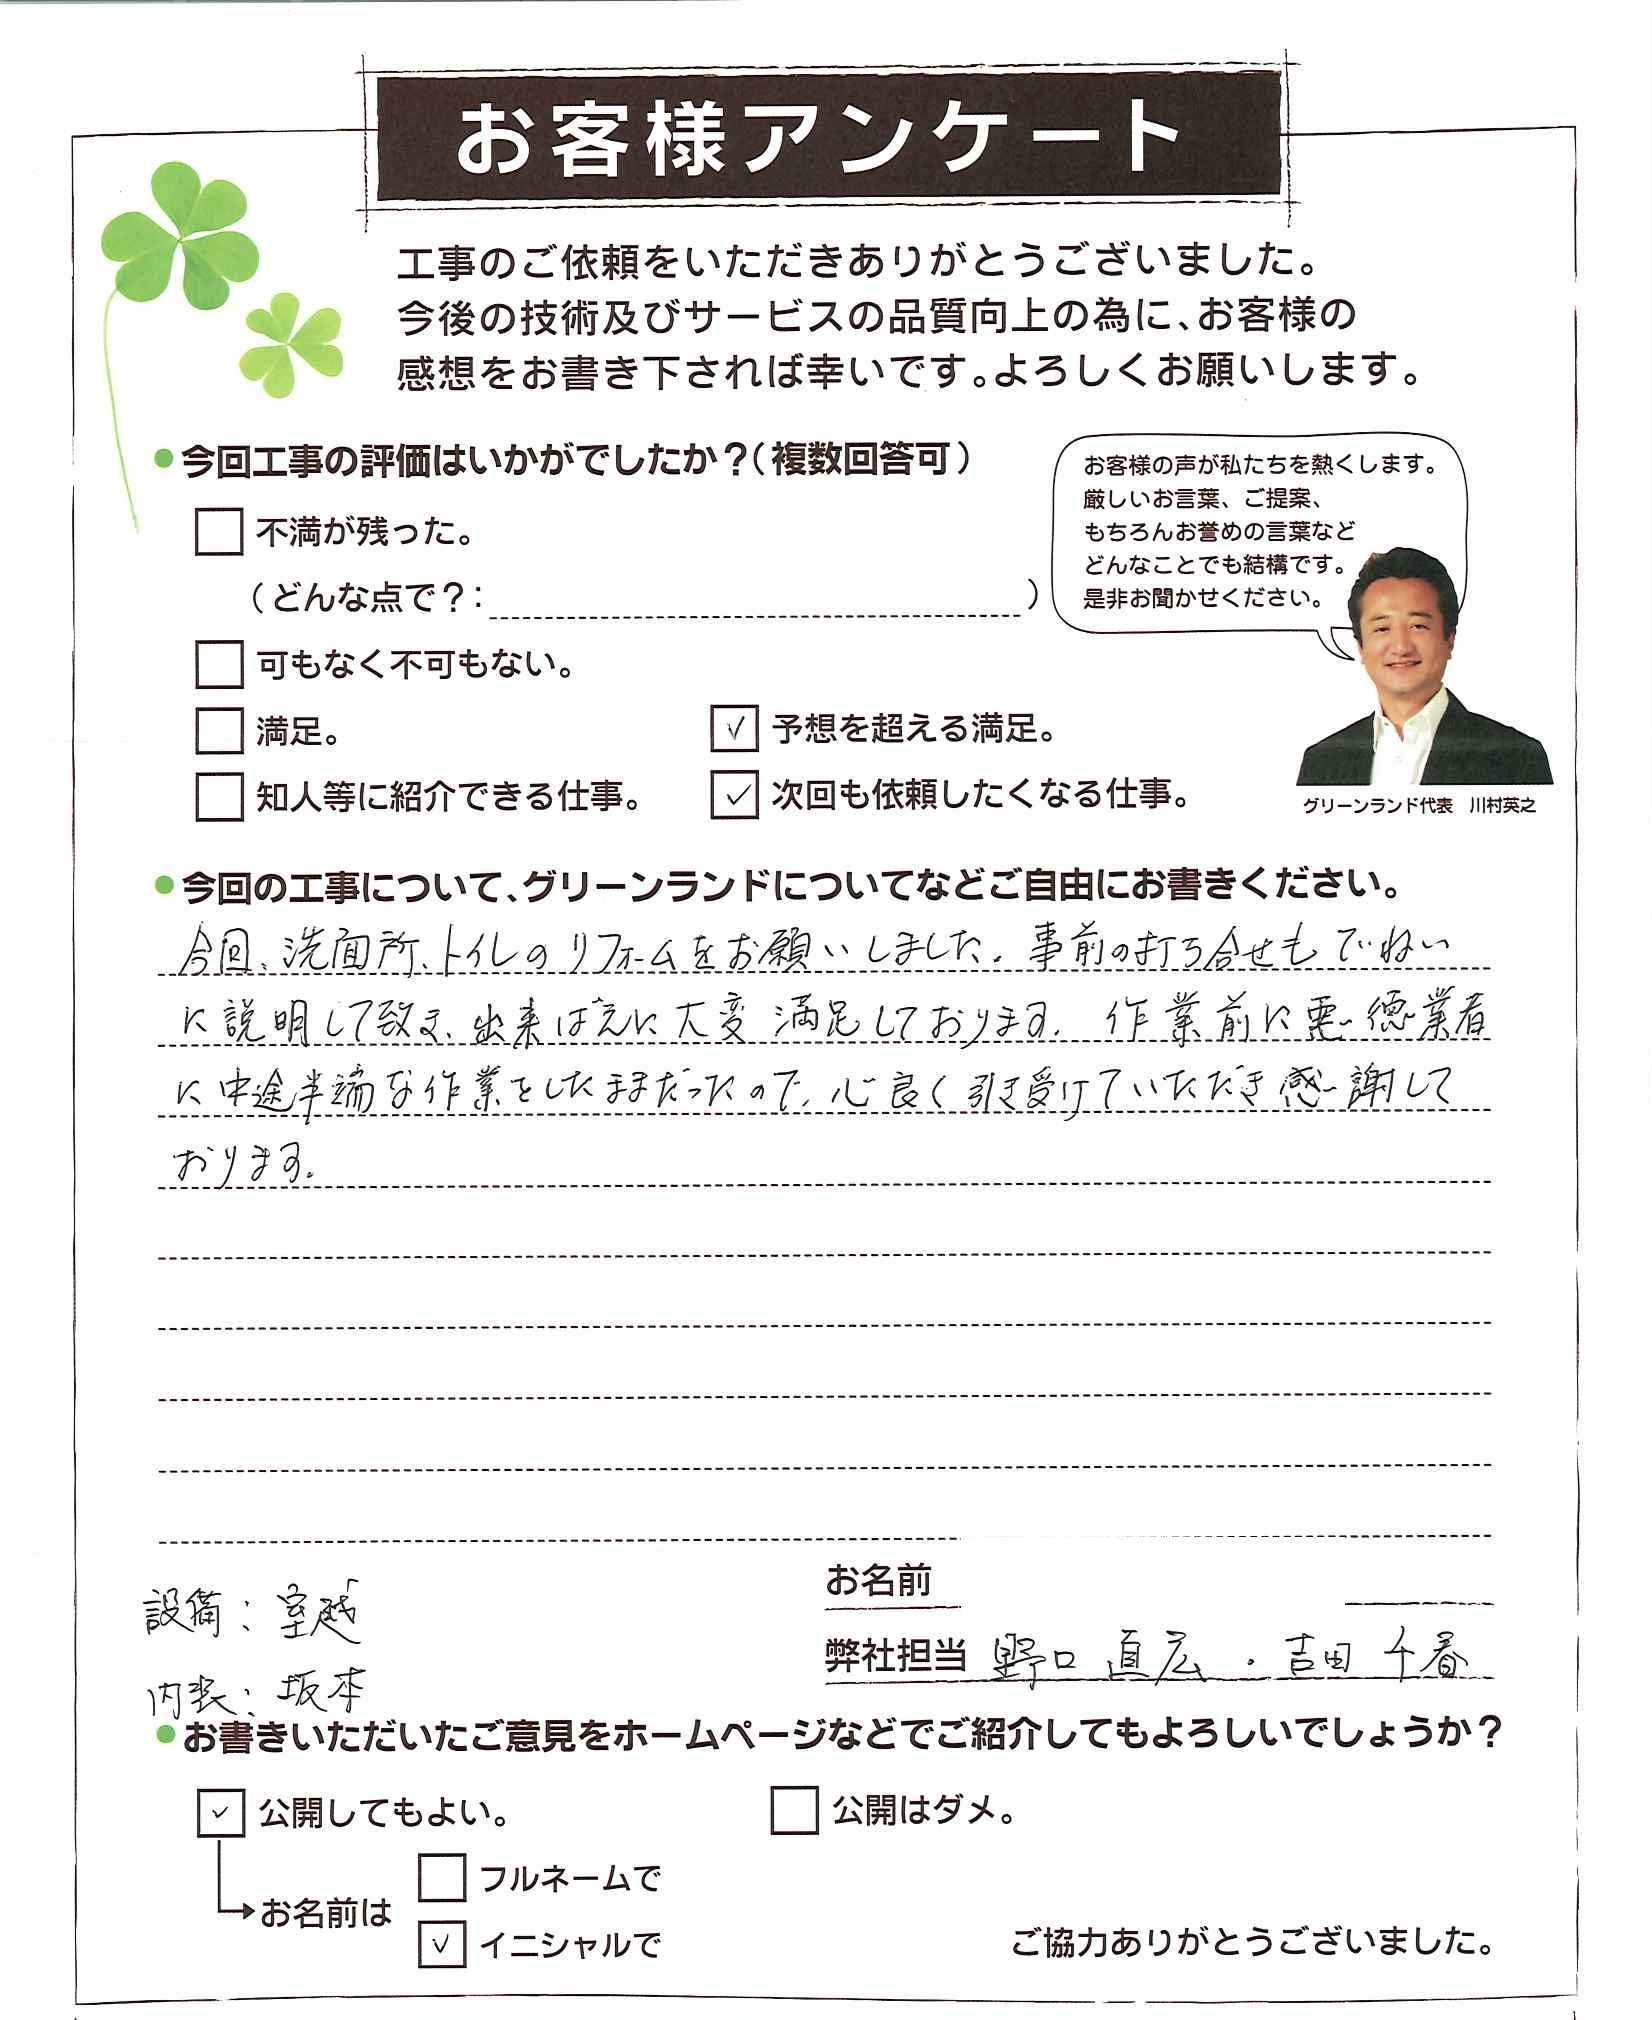 お客様アンケート
工事のご依頼をいただきありがとうございました。
今後の技術及びサービスの品質向上の為に、お客様の
感想をお書き下されば幸いです。よろしくお願いします。
●今回工事の評価はいかがでしたか？（複数回答可）
不満が残った。
（どんな点で？：　）
可もなく不可もない。
満足。
✓ 予想を超える満足。
知人等に紹介できる仕事。
✓ 次回も依頼したくなる仕事。
お客様の声が私たちを熱くします。
厳しいお言葉、ご提案、
もちろんお誉めの言葉など
どんなことでも結構です。
是非お聞かせください。
グリーンランド代表　川村英之
●今回の工事について、グリーンランドについてなどご自由にお書きください。
今回、洗面所、トイレのリフォームをお願いしました。事前の打ち合せもていねい
に説明して致き、出来ばえに大変満足しております。作業前に悪徳業者
に中途半端な作業をしたままだったので、心良く引き受けていただき感謝して
おります。
設備：室越
内装：坂本
お名前
弊社担当 野口 直広・吉田 千春
●お書きいただいたご意見をホームページなどでご紹介してもよろしいでしょうか？
✓ 公開してもよい。
公開はダメ。
お名前は
フルネームで
✓ イニシャルで
ご協力ありがとうございました。